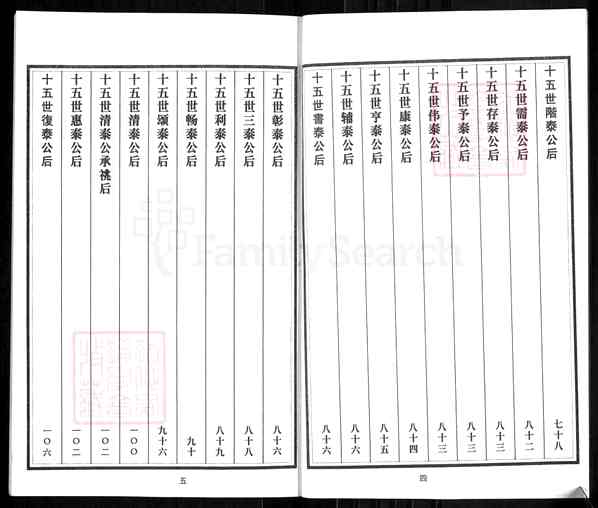 十五世階泰公后 七十八
十五世需泰公后 八十二
十五世存泰公后 八十三
十五世予泰公后 八十三
十五世伟泰公后 八十三
十五世康泰公后 八十四
十五世亨泰公后 八十五
十五世辅泰公后 八十六
十五世書泰公后 八十六
四
十五世彰泰公后 八十六
十五世三泰公后 八十八
十五世利泰公后 八十九
十五世畅泰公后 九十
十五世颂泰公后 九十六
十五世清泰公后 一〇〇
十五世清泰公承祧后 一〇二
十五世惠泰公后 一〇二
十五世復泰公后 一〇六
五
FamilySearch